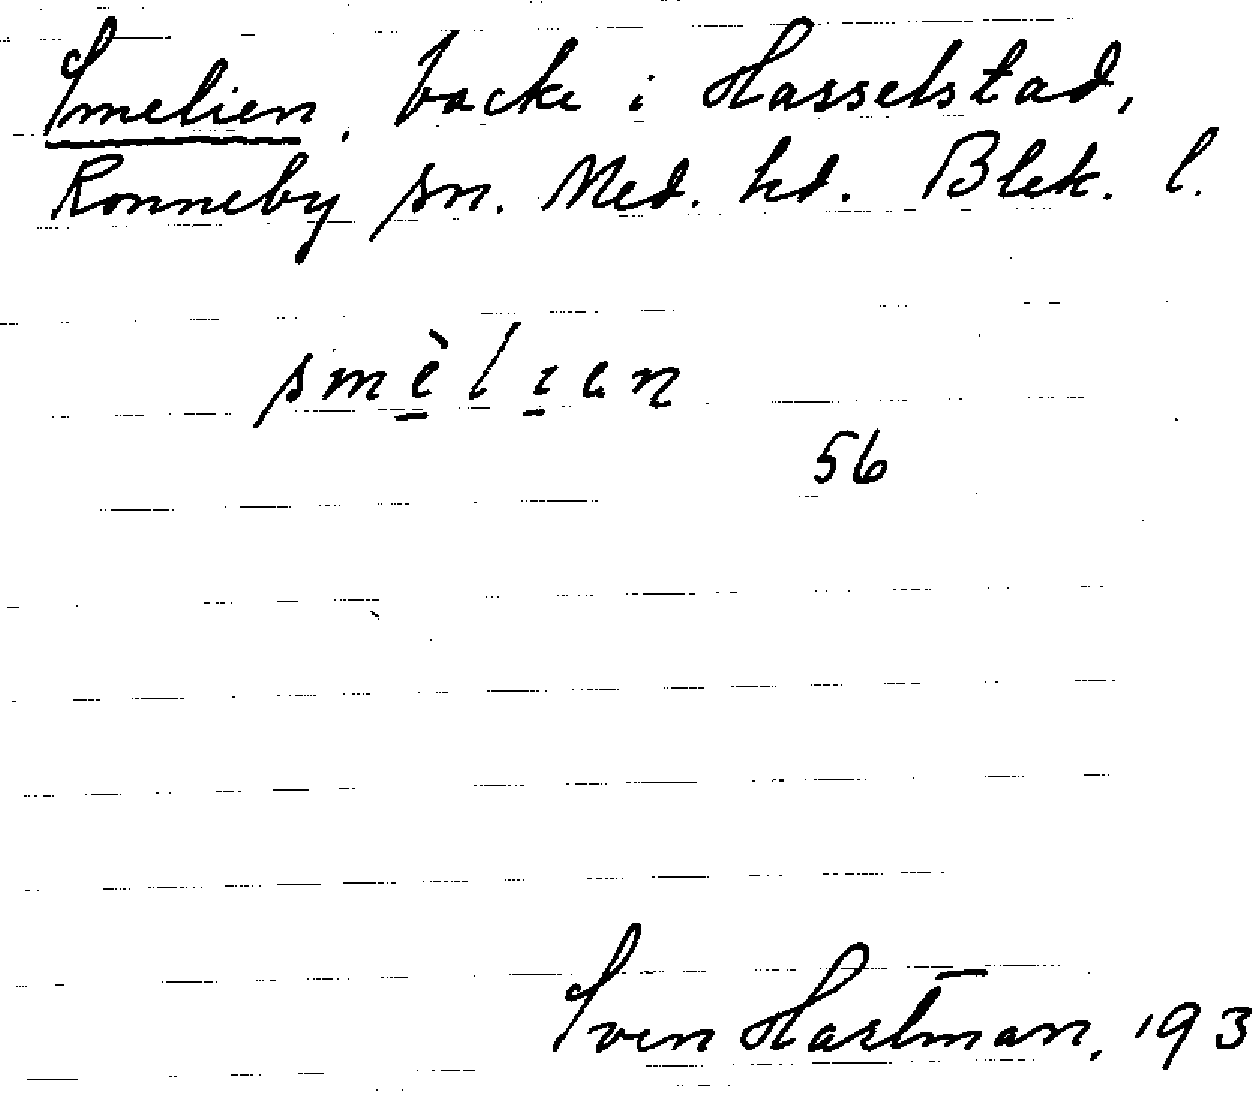 Smelien, backe i Hasselstad,
Ronneby sn. Med. hd. Blek. l.
smèlıen
56
Sven Hartman, 193